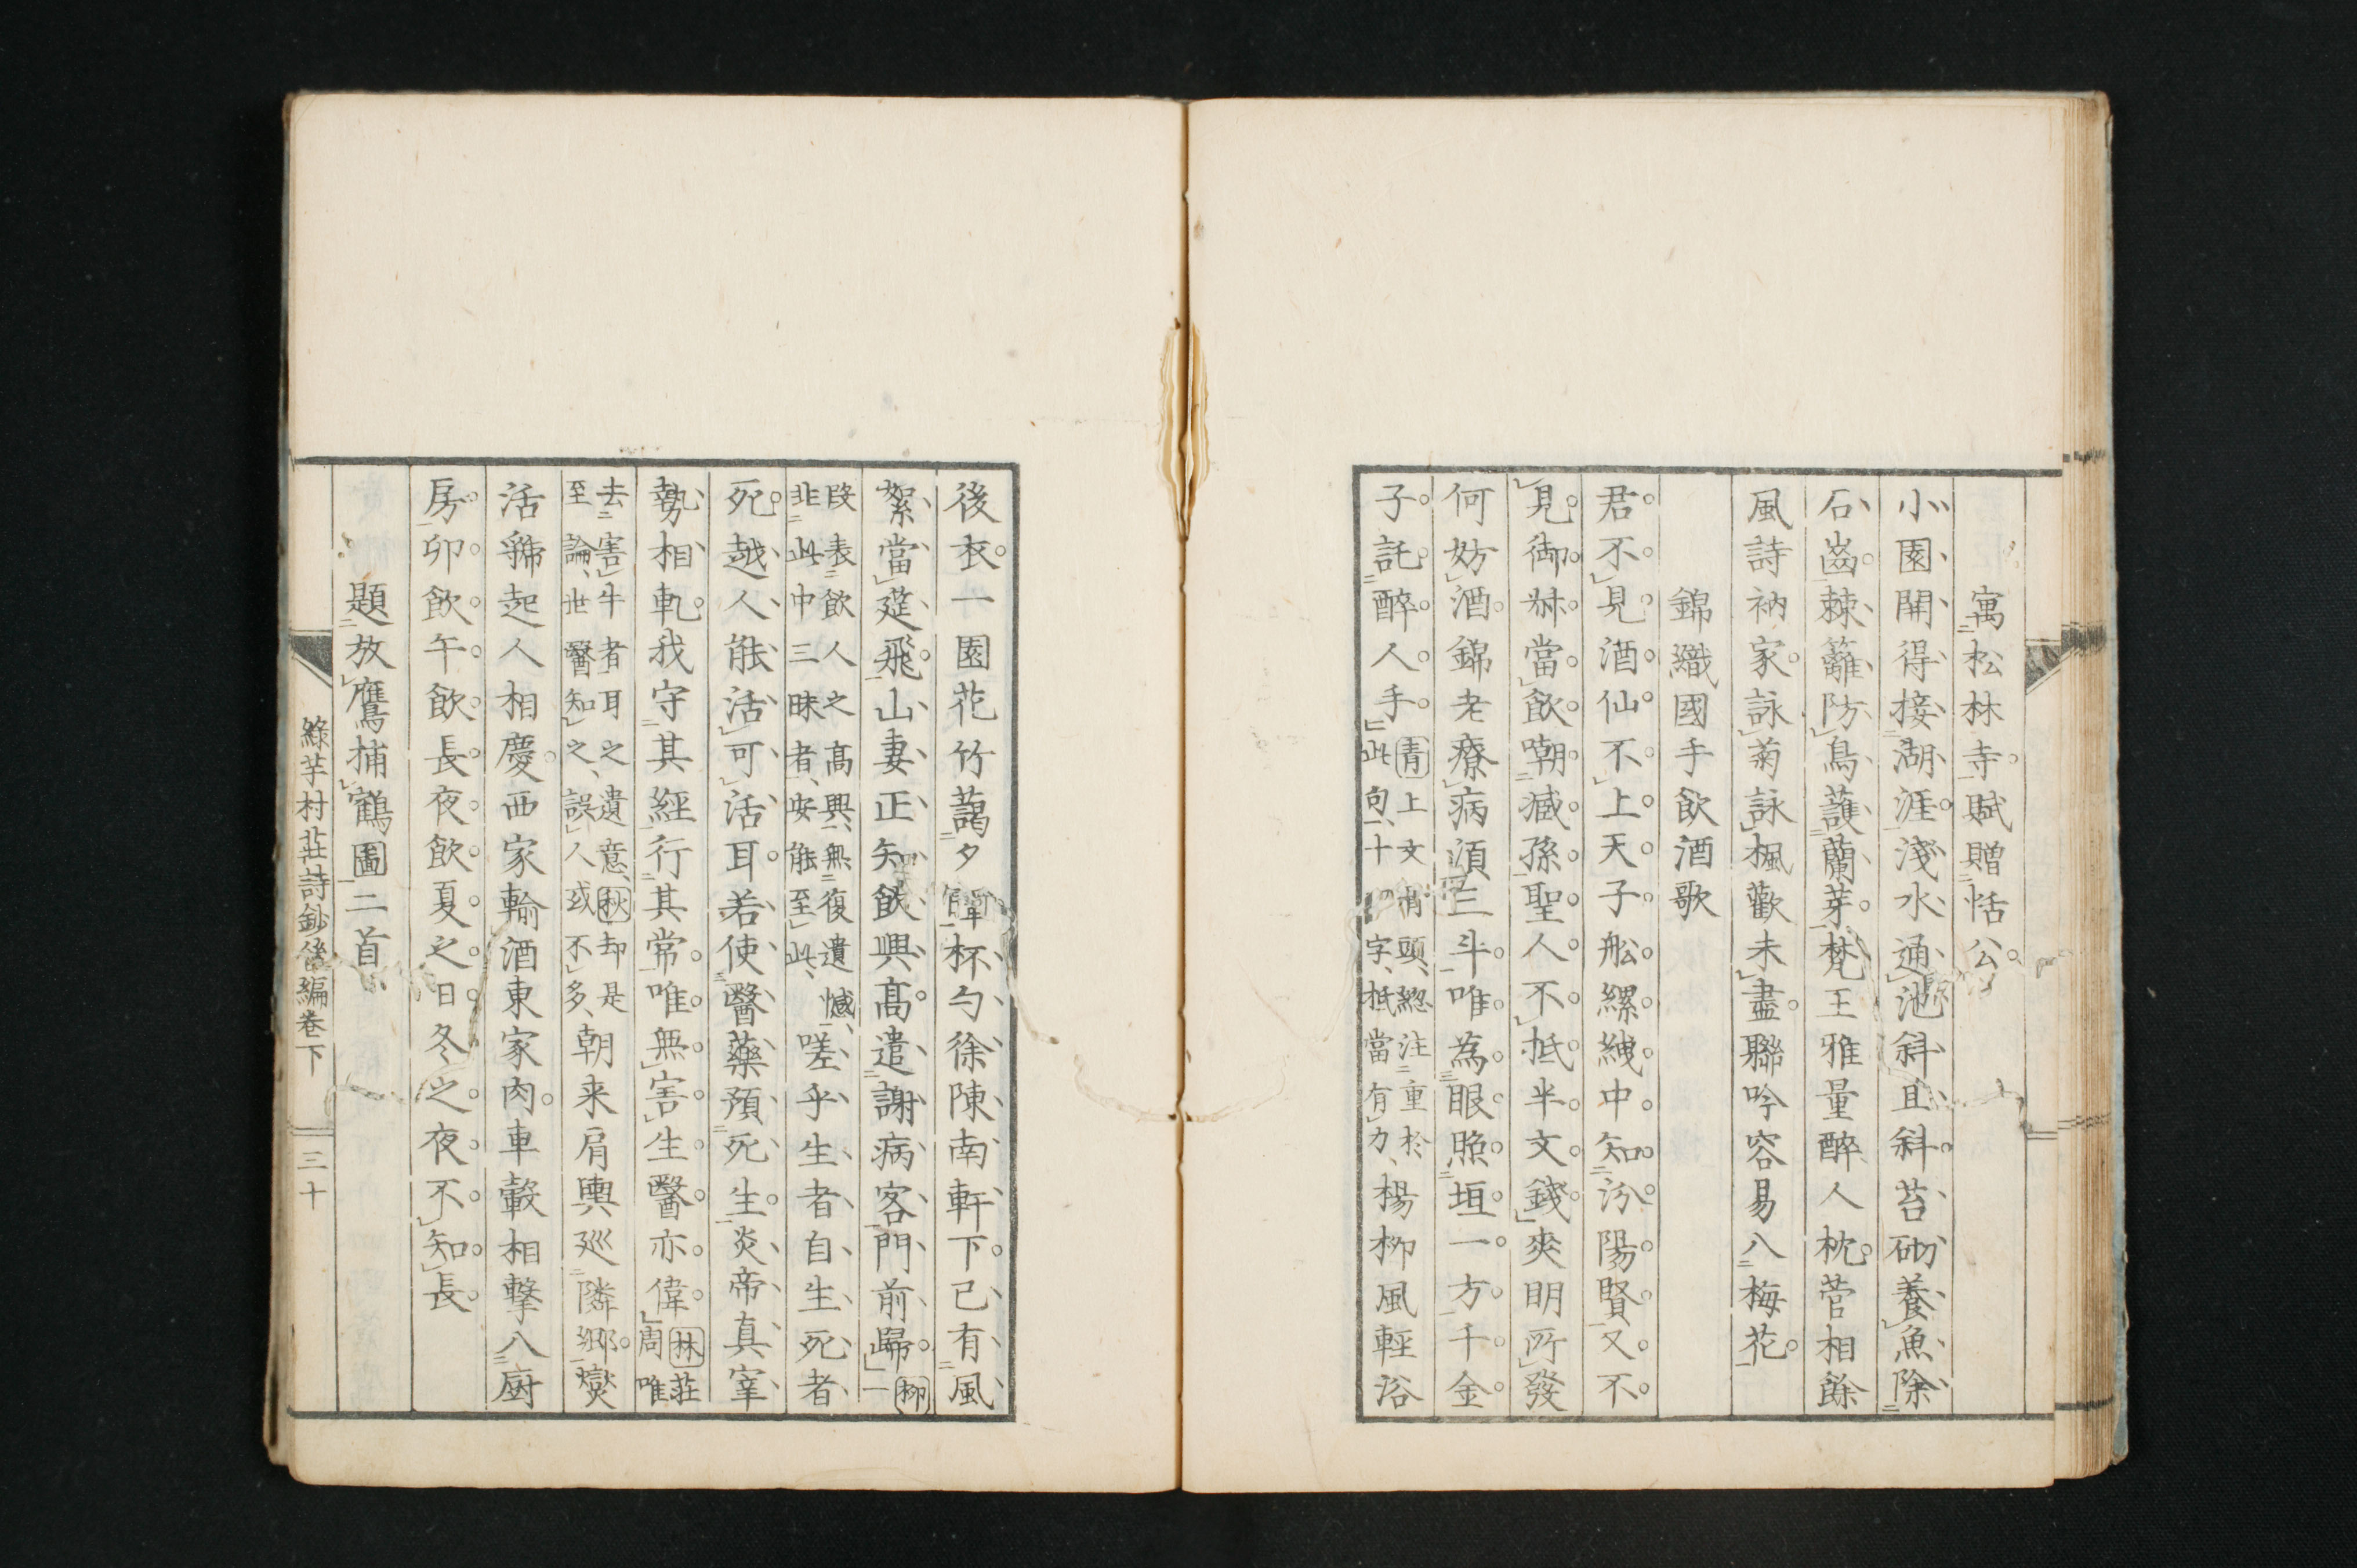 寓松林寺賦贈恬公
小園開得接湖涯淺水通池斜且斜苔砌養魚除
石齒棘籬防鳥護蘭芽梵王雅量醉人枕菅相餘
風詩衲家詠菊詠楓歡未盡聯吟容易八梅花
錦織國手飲酒歌
君不見酒仙不上天子舩縲絏中知汾陽賢又不
見御牀當飲嘲搣孫聖人不抵半文錢爽明所發
何妨酒錦老療病須三斗唯為眼照垣一方千金
子託醉人手
青上文 頭總注重於
此句十 字抵當有力
楊柳風輕浴
後衣一園花竹藹夕 杯勺徐陳南軒下已有風
絮當筵飛山妻正知飲興高遣謝病客門前歸
柳一
段表飲人之高興無復遺憾
非此中三昧者安能至此
嗟乎生者自生死者
死越人能活可活耳若使醫藥預死生炎帝真宰
勢相軋我守其經行其常唯無害生醫亦偉
林莊
周唯
去害牛者耳之遺意秋却是
至論世醫知之誤人或不多
朝来肩輿巡隣鄉爕
活號起人相慶西家輸酒東家肉車轂相擊八廚
房卯飲午飲長夜飲夏之日冬之夜不知長
題放鷹捕鶴圖二首
綠芋村莊詩鈔後編卷下
三十